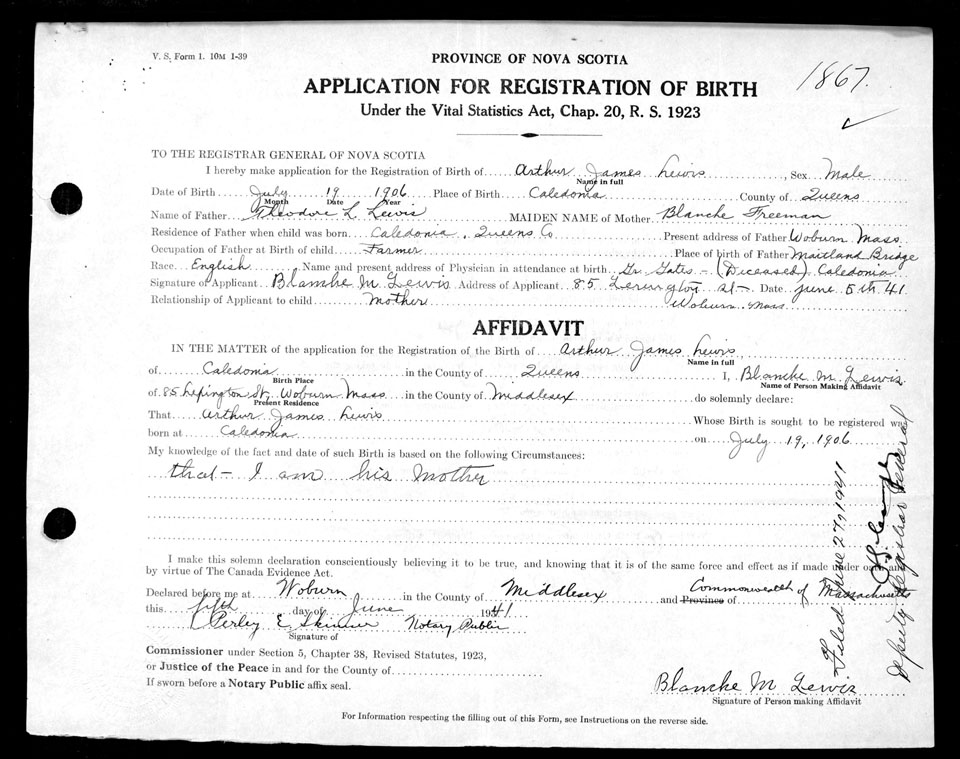 V. S. Form 1. 10M 1-39
PROVINCE OF NOVA SCOTIA
1867
APPLICATION FOR REGISTRATION OF BIRTH
Under the Vital Statistics Act, Chap. 20, R. S. 1923
TO THE REGISTRAR GENERAL OF NOVA SCOTIA
I hereby make application for the Registration of Birth of Arthur James Lewis, Sex Male
Name in full
Date of Birth July 19 1906 Place of Birth Caledonia County of Queens
Month Date Year
Name of Father Theodore L. Lewis MAIDEN NAME of Mother Blanche Freeman
Residence of Father when child was born Caledonia, Queens Co. Present address of Father Woburn Mass.
Occupation of Father at Birth of child Farmer Place of Birth of Father Maitland Bridge
Race English Name and present address of Physician in attendance at birth Dr. Gates - (Deceased) Caledonia
Signature of Applicant Blanche M Lewis Address of Applicant 85 Lexington St - Date June 5th 41
Relationship of Applicant to child Mother Woburn Mass
AFFIDAVIT
IN THE MATTER of the application for the Registration of the Birth of Arthur James Lewis
Name in full
of Caledonia in the County of Queens I, Blanche M. Lewis
Birth Place Name of Person Making Affidavit
of 85 Lexington St, Woburn Mass in the County of Middlesex do solemnly declare:
Present Residence
That Arthur James Lewis Whose Birth is sought to be registered was
born at Caledonia on July 19, 1906
My knowledge of the fact and date of such Birth is based on the following Circumstances:
that - I am his Mother
I make this solemn declaration conscientiously believing it to be true, and knowing that it is of the same force and effect as if made under oath and
by virtue of The Canada Evidence Act.
Declared before me at Woburn in the County of Middlesex and Province of Commonwealth of Massachusetts
this fifth day of June 1941
Perley E Skinner Notary Public
Signature of
Commissioner under Section 5, Chapter 38, Revised Statutes, 1923,
or Justice of the Peace in and for the County of
If sworn before a Notary Public affix seal.
Blanche M Lewis
Signature of Person making Affidavit
For Information respecting the filling out of this Form, see Instructions on the reverse side.
Filed June 27, 1941
Deputy Registrar General